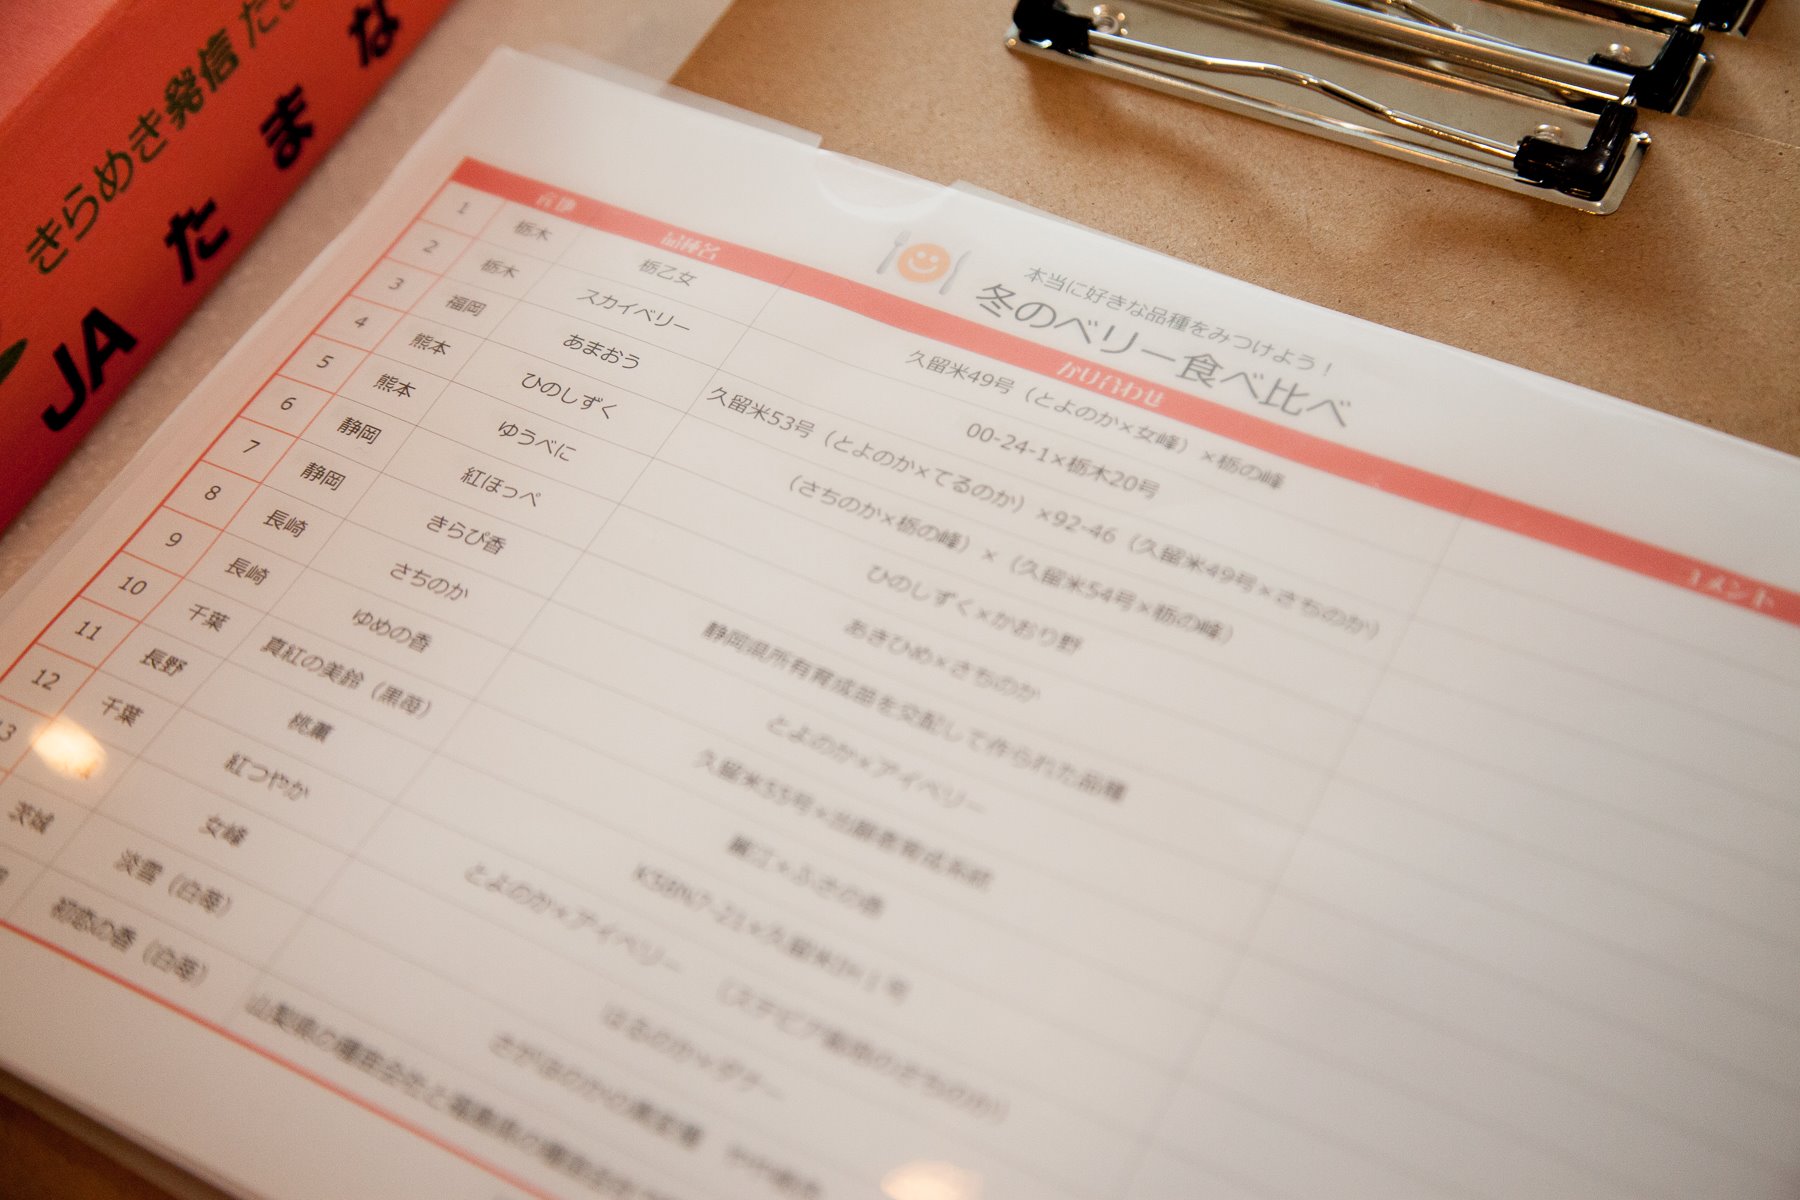 きらめき発信 たま
JA たまな
本当に好きな品種をみつけよう！
冬のベリー食べ比べ
産地 品種名 かけ合わせ コメント
1 栃木 栃乙女 久留米49号（とよのか×女峰）×栃の峰
2 栃木 スカイベリー 00-24-1×栃木20号
3 福岡 あまおう 久留米53号（とよのか×てるのか）×92-46（久留米49号×さちのか）
4 熊本 ひのしずく （さちのか×栃の峰）×（久留米54号×栃の峰）
5 熊本 ゆうべに ひのしずく×かおり野
6 静岡 紅ほっぺ あきひめ×さちのか
7 静岡 きらぴ香 静岡県所有育成苗を交配して作られた品種
8 長崎 さちのか とよのか×アイベリー
9 長崎 ゆめの香 久留米55号×出願者育成系統
10 千葉 真紅の美鈴（黒苺） 麗江×ふさの香
11 長野 桃薫 久留米
12 千葉 紅つやか とよのか×アイベリー
13 女峰 はるのか×ダナー
茨城 淡雪（白苺） さがほのかの
初恋の香（白苺） 山梨県の